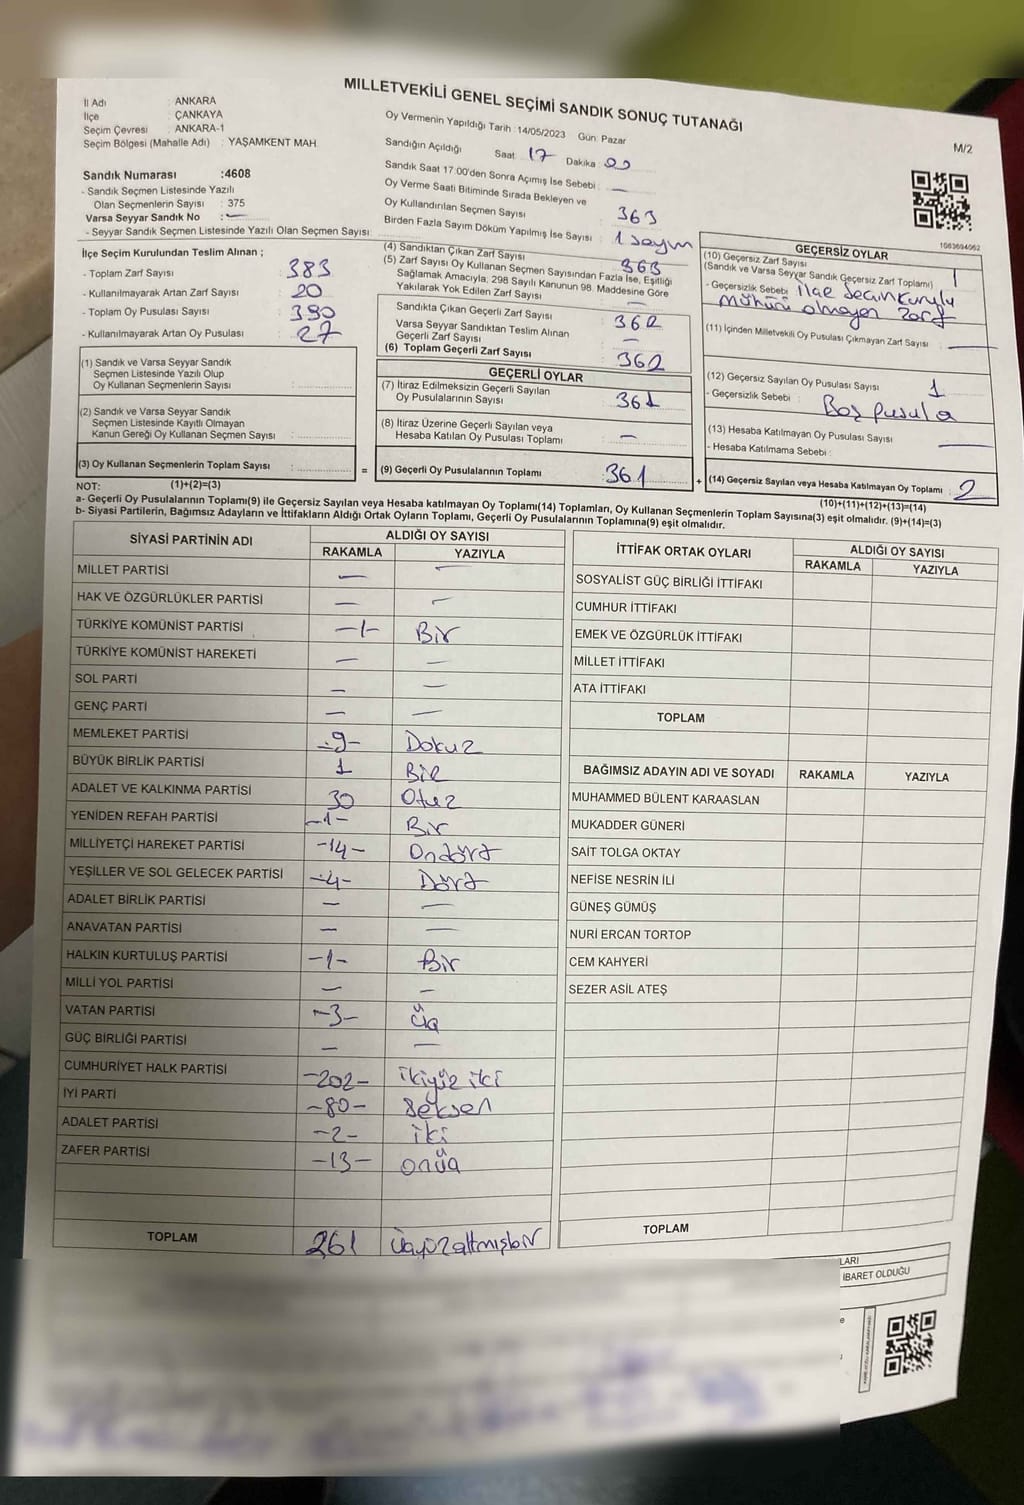 MİLLETVEKİLİ GENEL SEÇİMİ SANDIK SONUÇ TUTANAĞI
M/2
İl Adı : ANKARA
İlçe : ÇANKAYA
Seçim Çevresi : ANKARA-1
Seçim Bölgesi (Mahalle Adı) : YAŞAMKENT MAH
Sandık Numarası :4608
- Sandık Seçmen Listesinde Yazılı
Olan Seçmenlerin Sayısı : 375
Varsa Seyyar Sandık No : —
- Seyyar Sandık Seçmen Listesinde Yazılı Olan Seçmen Sayısı:
Oy Vermenin Yapıldığı Tarih : 14/05/2023 Gün: Pazar
Sandığın Açıldığı Saat : 17 Dakika : 00
Sandık Saat 17.00'den Sonra Açımış İse Sebebi : —
Oy Verme Saati Bitiminde Sırada Bekleyen ve
Oy Kullandırılan Seçmen Sayısı : 363
Birden Fazla Sayım Döküm Yapılmış İse Sayısı : 1 sayım
1083694062
İlçe Seçim Kurulundan Teslim Alınan ;
- Toplam Zarf Sayısı : 383
- Kullanılmayarak Artan Zarf Sayısı : 20
- Toplam Oy Pusulası Sayısı : 390
- Kullanılmayarak Artan Oy Pusulası : 27
(1) Sandık ve Varsa Seyyar Sandık
Seçmen Listesinde Yazılı Olup
Oy Kullanan Seçmenlerin Sayısı :
(2) Sandık ve Varsa Seyyar Sandık
Seçmen Listesinde Kayıtlı Olmayan
Kanun Gereği Oy Kullanan Seçmen Sayısı :
(3) Oy Kullanan Seçmenlerin Toplam Sayısı : =
(1)+(2)=(3)
(4) Sandıktan Çıkan Zarf Sayısı : 363
(5) Zarf Sayısı Oy Kullanan Seçmen Sayısından Fazla İse, Eşitliği
Sağlamak Amacıyla, 298 Sayılı Kanunun 98. Maddesine Göre
Yakılarak Yok Edilen Zarf Sayısı : —
Sandıkta Çıkan Geçerli Zarf Sayısı : 362
Varsa Seyyar Sandıktan Teslim Alınan
Geçerli Zarf Sayısı : —
(6) Toplam Geçerli Zarf Sayısı : 362
GEÇERLİ OYLAR
(7) İtiraz Edilmeksizin Geçerli Sayılan
Oy Pusulalarının Sayısı : 361
(8) İtiraz Üzerine Geçerli Sayılan veya
Hesaba Katılan Oy Pusulası Toplamı : —
(9) Geçerli Oy Pusulalarının Toplamı : 361 +
GEÇERSİZ OYLAR
(10) Geçersiz Zarf Sayısı
(Sandık ve Varsa Seyyar Sandık Geçersiz Zarf Toplamı) : 1
- Geçersizlik Sebebi : İlçe Seçim kurulu
mührü olmayan zarf
(11) İçinden Milletvekili Oy Pusulası Çıkmayan Zarf Sayısı : —
(12) Geçersiz Sayılan Oy Pusulası Sayısı : 1
- Geçersizlik Sebebi : Boş pusula
(13) Hesaba Katılmayan Oy Pusulası Sayısı : —
- Hesaba Katılmama Sebebi :
(14) Geçersiz Sayılan veya Hesaba Katılmayan Oy Toplamı : 2
(10)+(11)+(12)+(13)=(14)
NOT:
a- Geçerli Oy Pusulalarının Toplamı(9) ile Geçersiz Sayılan veya Hesaba katılmayan Oy Toplamı(14) Toplamları, Oy Kullanan Seçmenlerin Toplam Sayısına(3) eşit olmalıdır. (9)+(14)=(3)
b- Siyasi Partilerin, Bağımsız Adayların ve İttifakların Aldığı Ortak Oyların Toplamı, Geçerli Oy Pusulalarının Toplamına(9) eşit olmalıdır.
SİYASİ PARTİNİN ADI ALDIĞI OY SAYISI
RAKAMLA YAZIYLA
MİLLET PARTİSİ — —
HAK VE ÖZGÜRLÜKLER PARTİSİ — —
TÜRKİYE KOMÜNİST PARTİSİ -1- Bir
TÜRKİYE KOMÜNİST HAREKETİ — —
SOL PARTİ — —
GENÇ PARTİ — —
MEMLEKET PARTİSİ -9- Dokuz
BÜYÜK BİRLİK PARTİSİ 1 Bir
ADALET VE KALKINMA PARTİSİ 30 Otuz
YENİDEN REFAH PARTİSİ -1- Bir
MİLLİYETÇİ HAREKET PARTİSİ -14- Ondört
YEŞİLLER VE SOL GELECEK PARTİSİ -4- Dört
ADALET BİRLİK PARTİSİ — —
ANAVATAN PARTİSİ — —
HALKIN KURTULUŞ PARTİSİ -1- Bir
MİLLİ YOL PARTİSİ — —
VATAN PARTİSİ -3- üç
GÜÇ BİRLİĞİ PARTİSİ — —
CUMHURİYET HALK PARTİSİ -202- ikiyüz iki
İYİ PARTİ -80- Seksen
ADALET PARTİSİ -2- iki
ZAFER PARTİSİ -13- onüç
TOPLAM 261 üçyüzaltmışbir
İTTİFAK ORTAK OYLARI ALDIĞI OY SAYISI
RAKAMLA YAZIYLA
SOSYALİST GÜÇ BİRLİĞİ İTTİFAKI
CUMHUR İTTİFAKI
EMEK VE ÖZGÜRLÜK İTTİFAKI
MİLLET İTTİFAKI
ATA İTTİFAKI
TOPLAM
BAĞIMSIZ ADAYIN ADI VE SOYADI RAKAMLA YAZIYLA
MUHAMMED BÜLENT KARAASLAN
MUKADDER GÜNERİ
SAİT TOLGA OKTAY
NEFİSE NESRİN İLİ
GÜNEŞ GÜMÜŞ
NURİ ERCAN TORTOP
CEM KAHYERİ
SEZER ASİL ATEŞ
TOPLAM
LARI
İBARET OLDUĞU